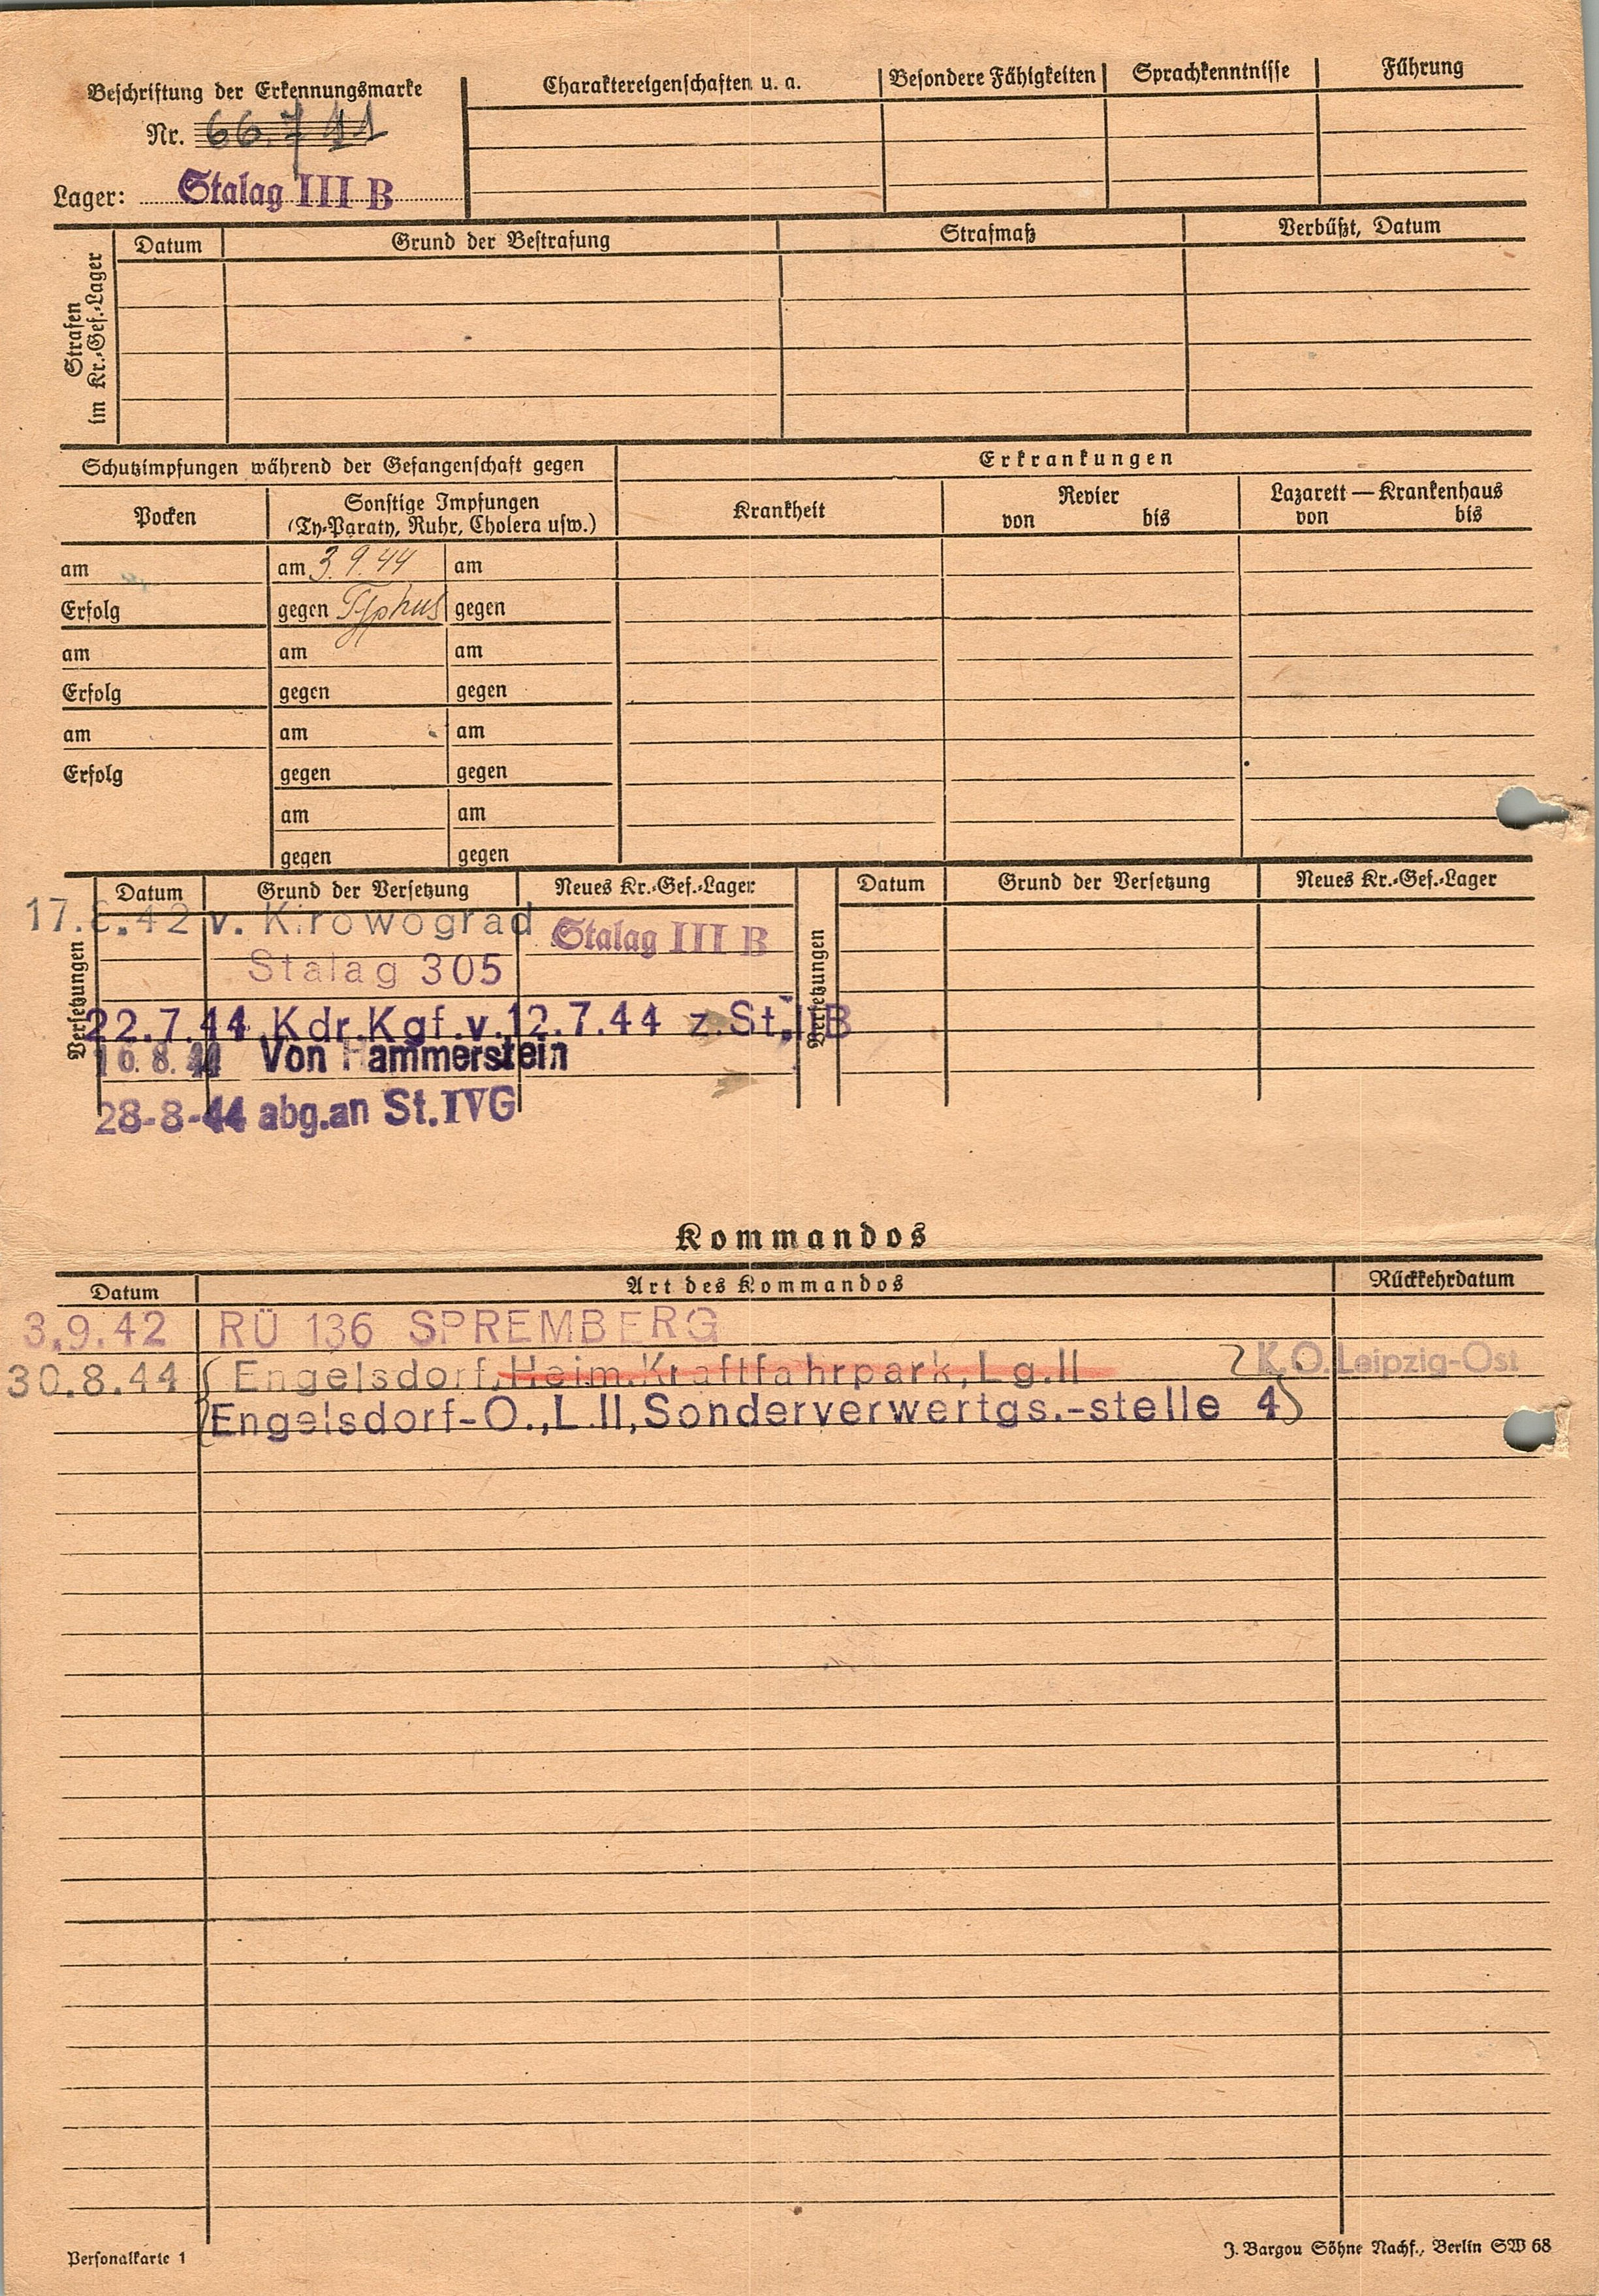 Beschriftung der Erkennungsmarke
Nr. 66.711
Lager: Stalag III B
Charaktereigenschaften u. a.
Besondere Fähigkeiten
Sprachkenntnisse
Führung
Strafen im Kr.-Gef.-Lager
Datum
Grund der Bestrafung
Strafmaß
Verbüßt, Datum
Schutzimpfungen während der Gefangenschaft gegen
Erkrankungen
Pocken
Sonstige Impfungen
(Ty-Paraty, Ruhr, Cholera usw.)
Krankheit
Revier
von bis
Lazarett — Krankenhaus
von bis
am am 3.9.44 am
Erfolg gegen Typhus gegen
am am am
Erfolg gegen gegen
am am am
Erfolg gegen gegen
am am
gegen gegen
Versetzungen
Datum Grund der Versetzung Neues Kr.-Gef.-Lager
17.6.42 v. Kirowograd Stalag III B
Stalag 305
22.7.44 Kdr.Kgf.v.12.7.44 z.St.IIB
10.8.44 Von Hammerstein
28-8-44 abg.an St.IVG
Versetzungen
Datum Grund der Versetzung Neues Kr.-Gef.-Lager
Kommandos
Datum Art des Kommandos Rückkehrdatum
3.9.42 RÜ 136 SPREMBERG
30.8.44 Engelsdorf, Heim.Kraftfahrpark, Lg.II K.O.Leipzig-Ost
Engelsdorf-O.,L.II,Sonderverwertgs.-stelle 4
Personalkarte 1
J. Bargou Söhne Nachf., Berlin SW 68